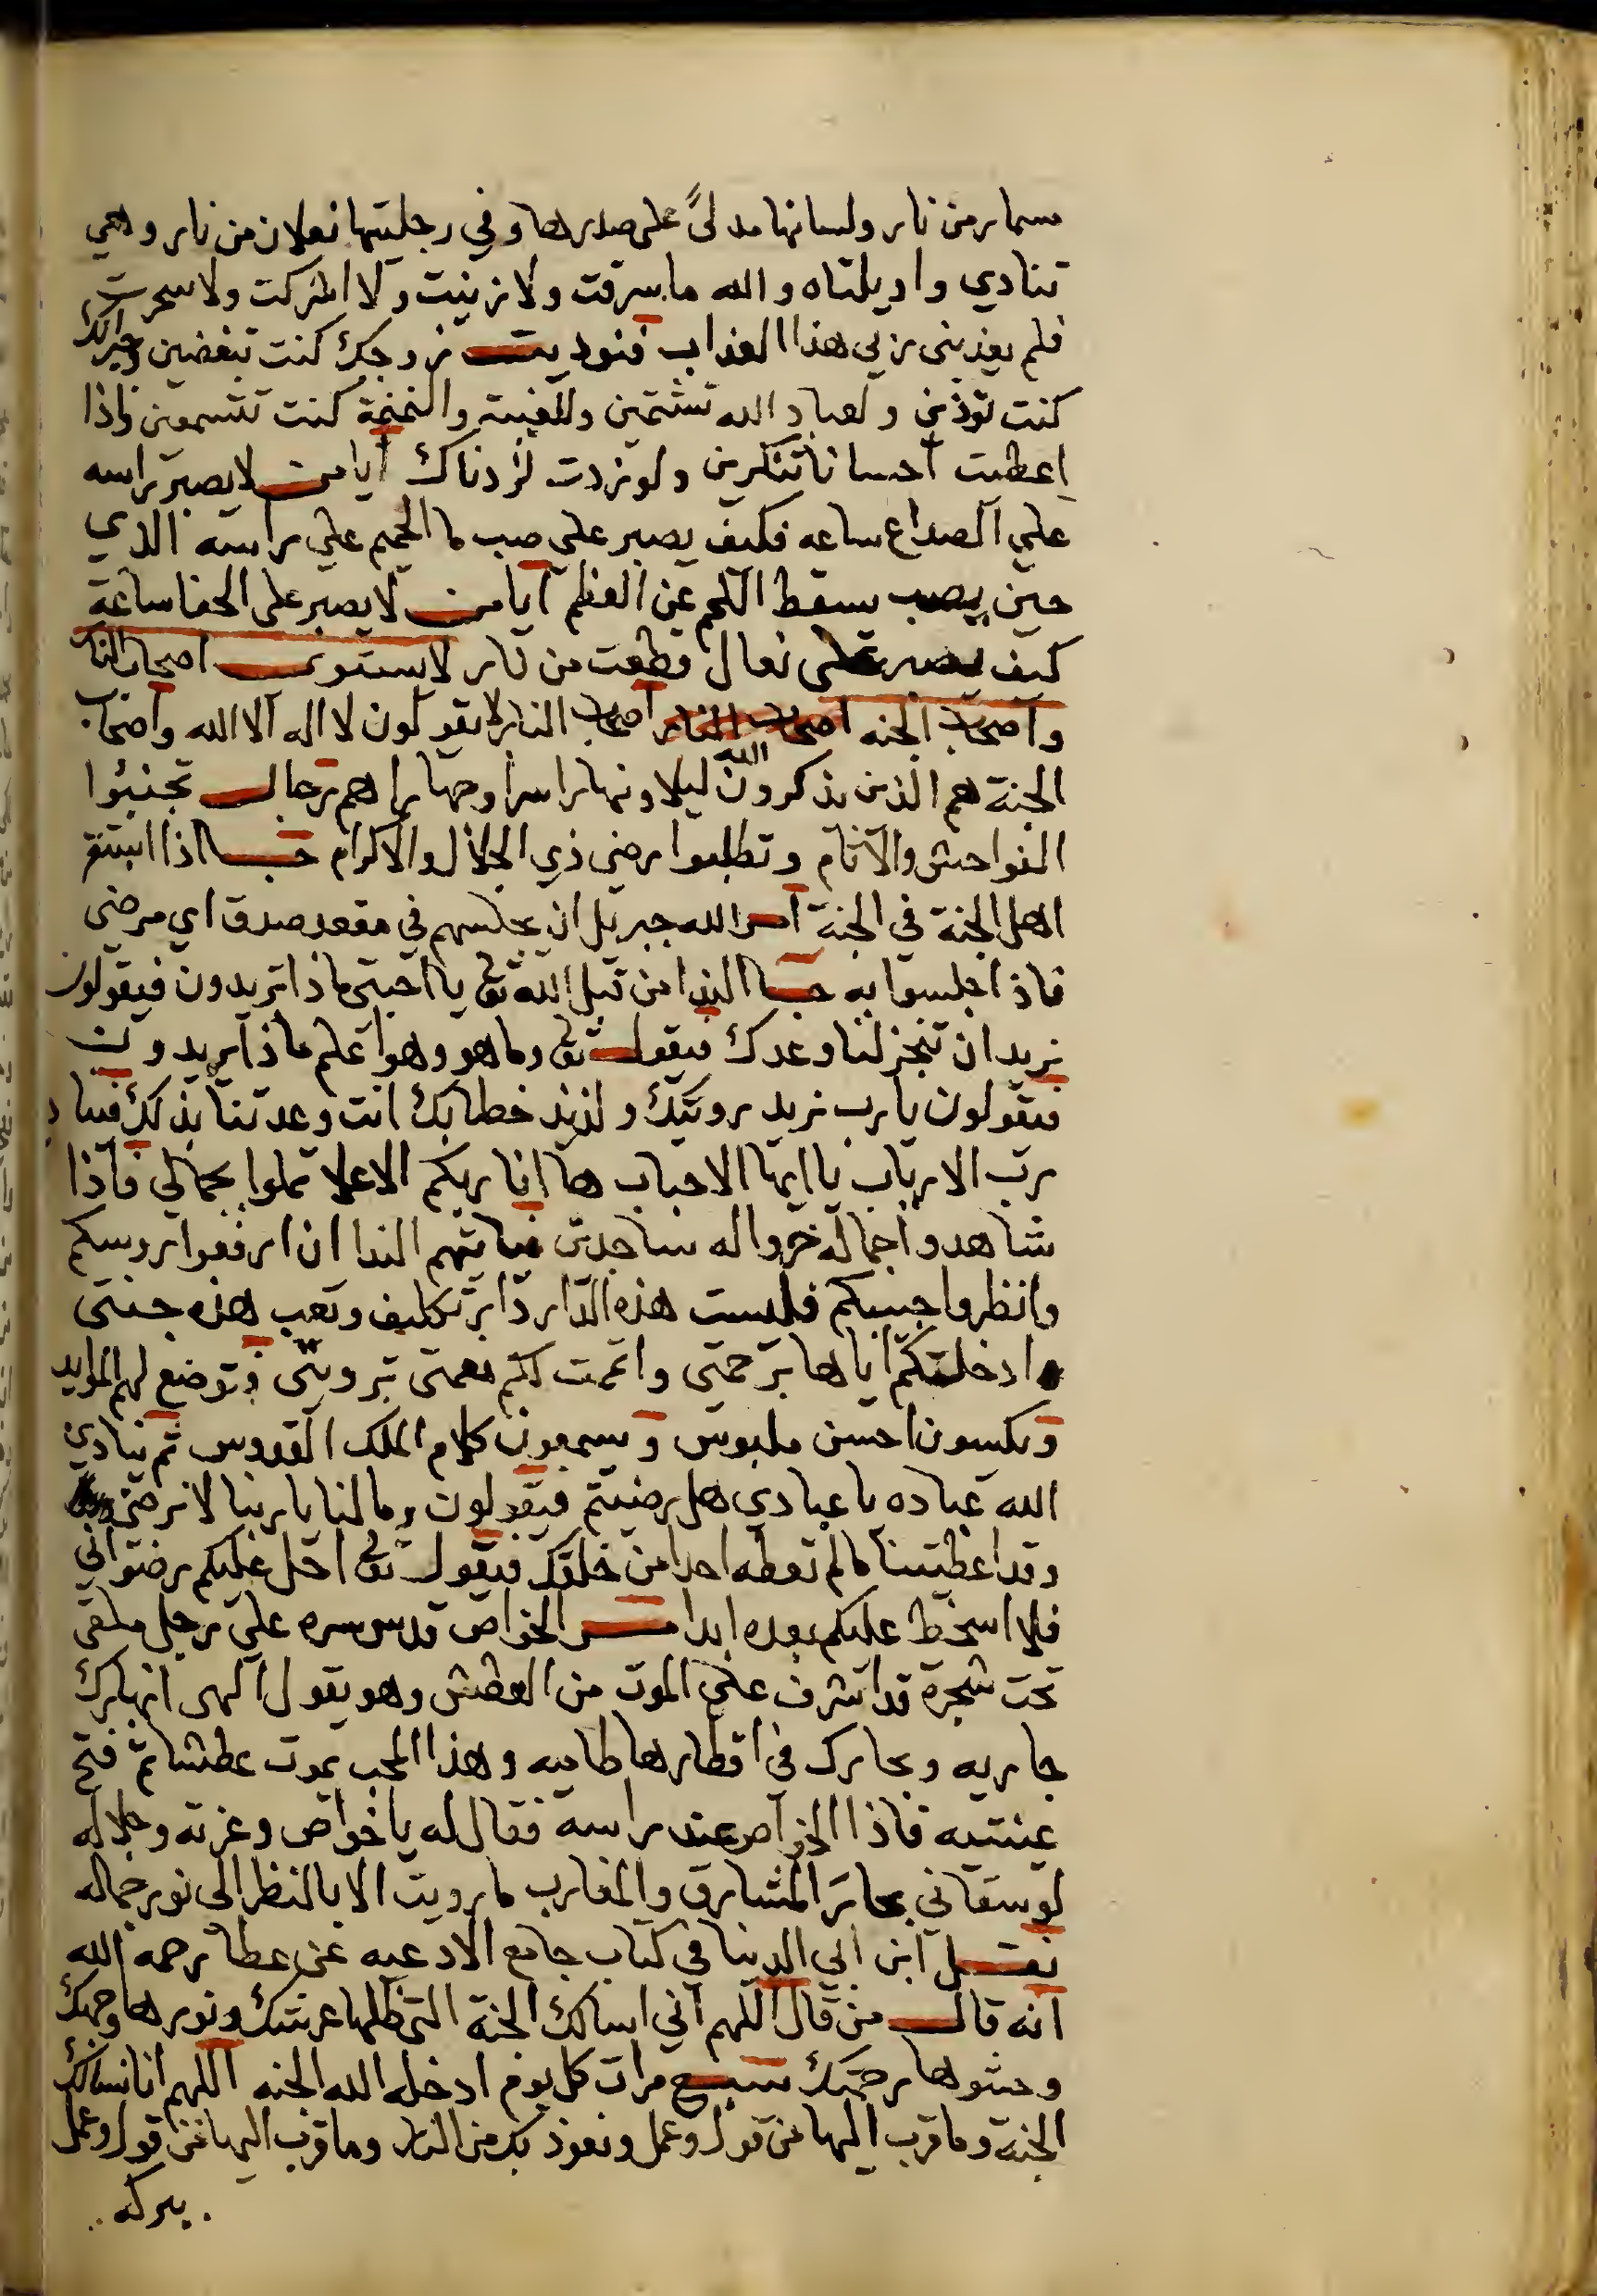 مسمار من نار ولسانها مدلىً على صدرها وفي رجليها نعلان من نار وهي
تنادي واويلتاه والله ما سرقت ولا زنيت ولا اشركت ولا سحرت
فلم يعذبني ربي هذا العذاب فنوديت زوجك كنت تبغضين وجيرانك
كنت توذين ولعباد الله تشتمين وللغيبة والنميمة كنت تسمعين واذا
اعطيت احسانا تنكرين ولو زدت لزدناك ايا من لا يصبر راسه
علي الصداع ساعه فكيف يصبر علي صب ما الحميم علي راسه الذي
حين يصب يسقط اللحم عن العظم ايا من لا يصبر على الحفا ساعة
كيف يصبر على نعال قطعت من نار لا يستوي اصحاب النار
واصحاب الجنه اصحاب النار اصحاب النار لا يقولون لا اله الا الله واصحاب
الجنة هم الذين يذكرون الله ليلا ونهارا سرا وجهارا هم رجال تجنبوا
الفواحش والآثام وتطلبوا رضى ذي الجلال والاكرام حا اذا استقر
اهل الجنة في الجنة امر الله جبريل ان يجلسهم في مقعد صدق اي مرضى
فاذا جلسوا به حا الندا من قبل الله تعالى يا احبتي ماذا تريدون فيقولون
نريد ان تنجز لنا وعدك فيقول تعالى وما هو وهو اعلم ماذا يريدون
فيقولون يا رب نريد رويتك ولذيذ خطابك انت وعدتنا بذلك فينادي
رب الارباب يا ايها الاحباب ها انا ربكم الاعلا تملوا بجمالي فاذا
شاهدوا جماله خروا له ساجدين فياتيهم الندا ان ارفعوا روسكم
وانظروا حبيبكم فليست هذه الدار دار تكليف وتعب هذه جنتى
وادخلتكم اياها برحمتى واتممت لكم نعمتى برويتى فتوضع لهم الموايد
ويكسون احسن ملبوس ويسمعون كلام الملك القدوس ثم ينادي
الله عباده يا عبادي هل رضيتم فيقولون وما لنا يا ربنا لا نرضى
وقد اعطيتنا ما لم تعطه احدا من خلقك فيقول تعالى احل عليكم رضواني
فلا اسخط عليكم بعده ابدا مر الخواص قدس سره علي رجل ملقى
تحت شجرة قد اشرف علي الموت من العطش وهو يقول الهى انهارك
جاريه وبحارك في اقطارها طاميه وهذا المحب يموت عطشا ثم فتح
عينيه فاذا الخواص عند راسه فقال له يا خواص وعزته وجلاله
لو سقاني بحار المشارق والمغارب ما رويت الا بالنظر الى نور جماله
نقل ابن ابي الدنيا في كتاب جامع الادعيه عن عطا رحمه الله
انه قال من قال اللهم اني اسالك الجنة التي ظلها عرشك ونورها وجهك
وحشوها رحمتك سبع مرات كل يوم ادخله الله الجنه اللهم انا نسالك
الجنة وما قرب اليها من قول وعمل ونعوذ بك من النار وما قرب اليها من قول وعمل
ببركه